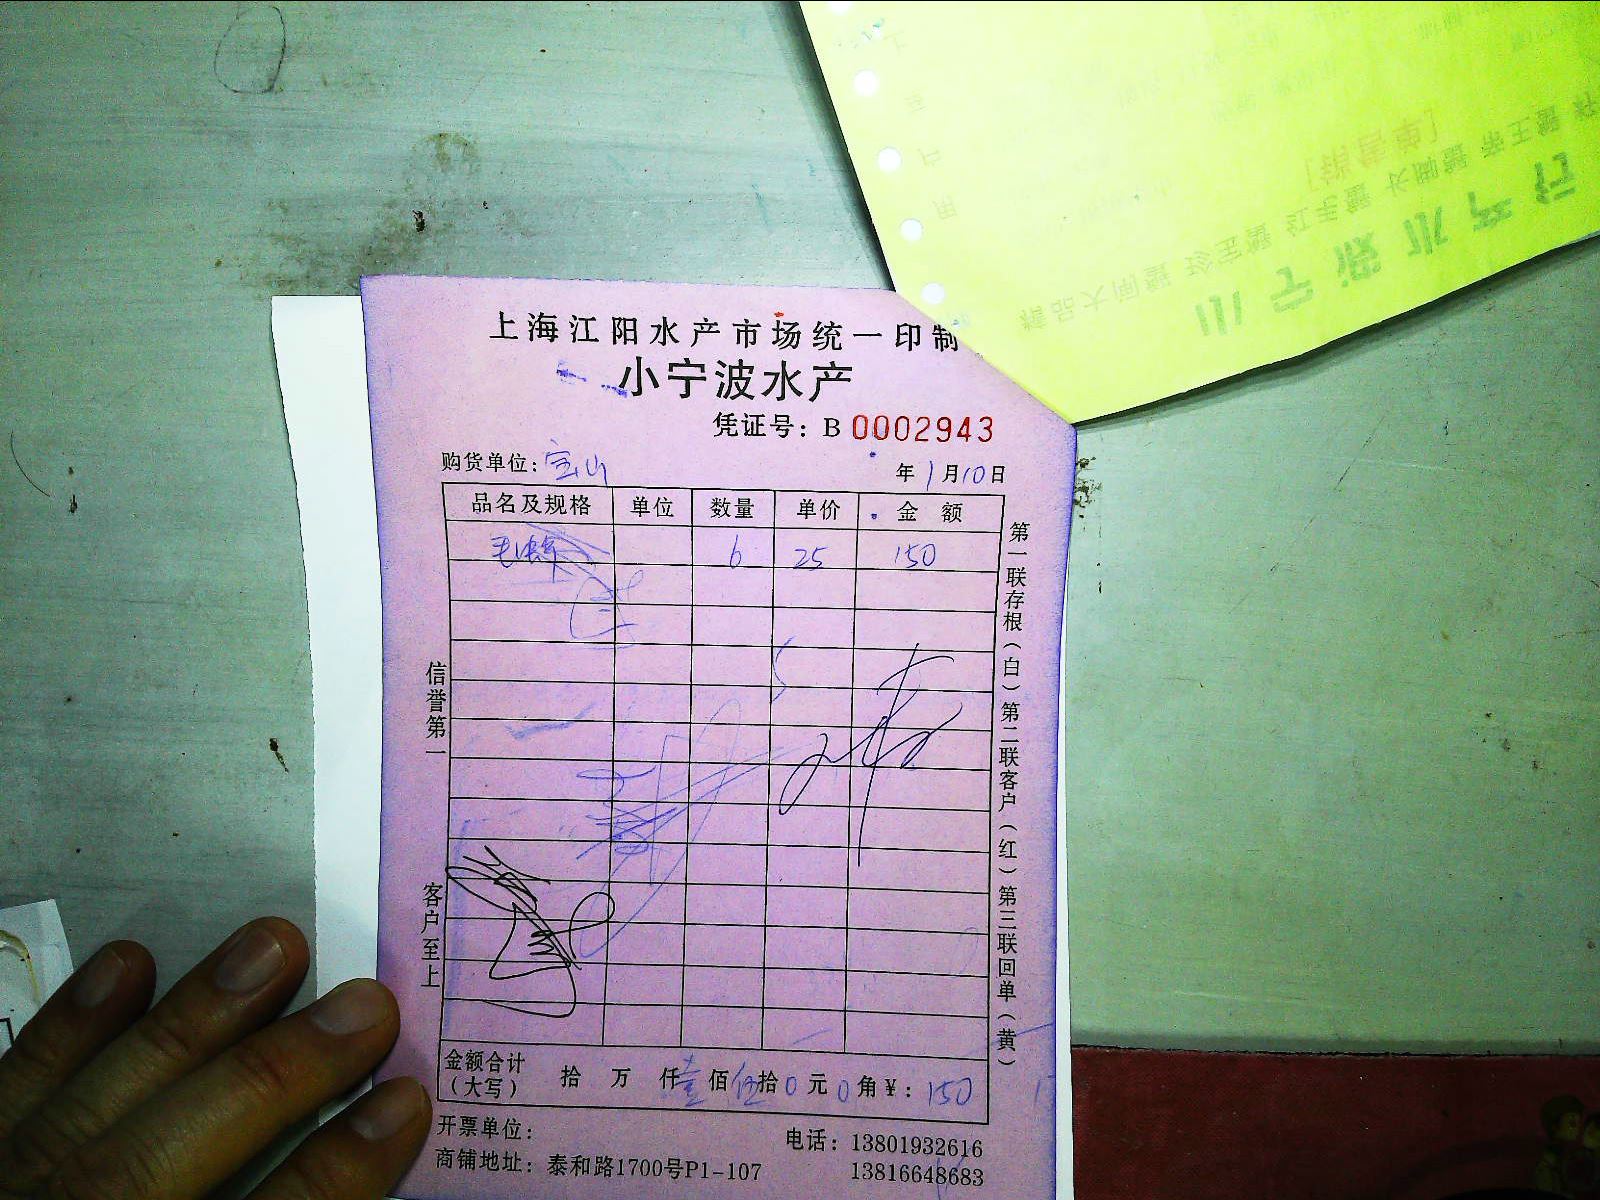 上海江阳水产市场统一印制
小宁波水产
凭证号：B 0002943
购货单位：宝山
年 1月10日
品名及规格 单位 数量 单价 金额
毛 6 25 150
信誉第一
客户至上
第一联存根（白）第二联客户（红）第三联回单（黄）
金额合计（大写） 拾 万 仟壹佰伍拾0元0角￥：150
开票单位：
电话：13801932616
商铺地址：泰和路1700号P1-107
13816648683
小宁波水产
精品大闸蟹
[销售单]